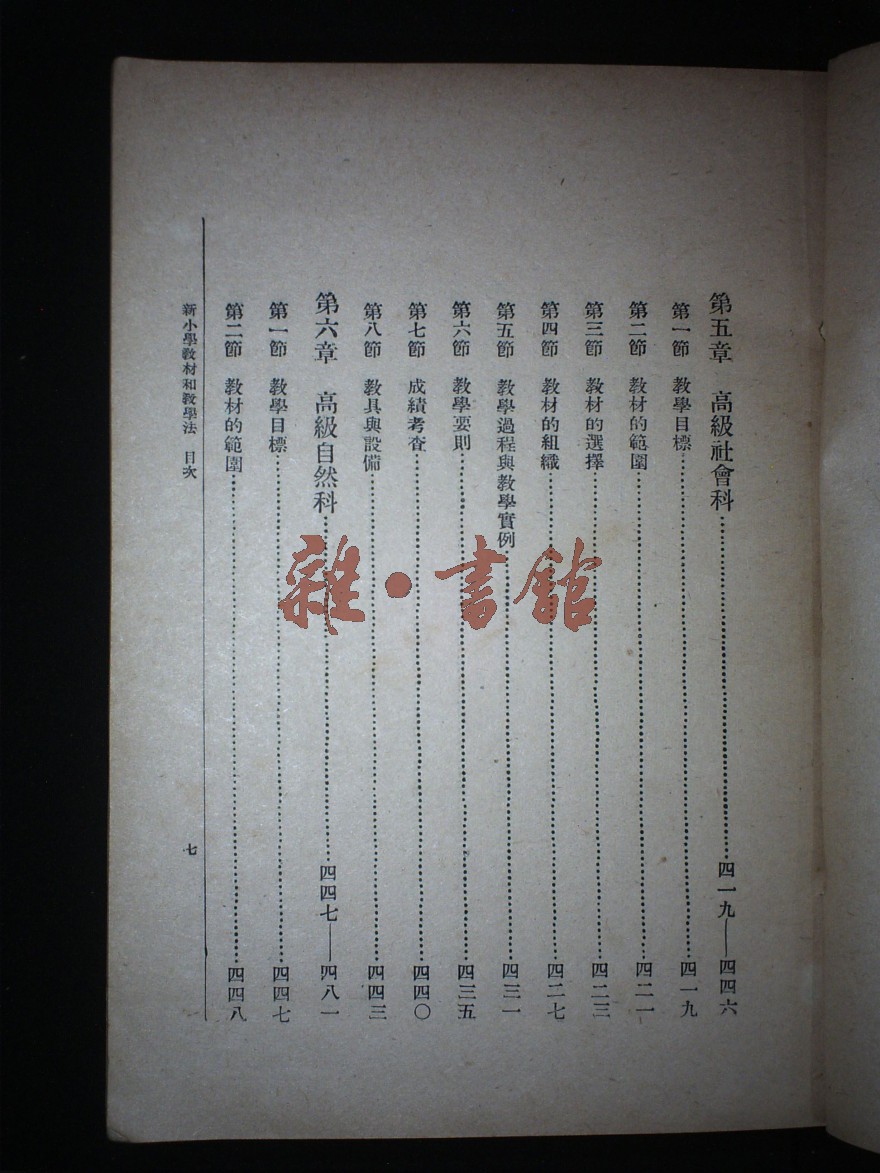 第五章 高級社會科……四一九—四四六
第一節 教學目標……四一九
第二節 教材的範圍……四二一
第三節 教材的選擇……四二三
第四節 教材的組織……四二七
第五節 教學過程與教學實例……四三一
第六節 教學要則……四三五
第七節 成績考查……四四〇
第八節 教具與設備……四四三
第六章 高級自然科……四四七—四八一
第一節 教學目標……四四七
第二節 教材的範圍……四四八
新小學教材和教學法 目次
七
雜·書館